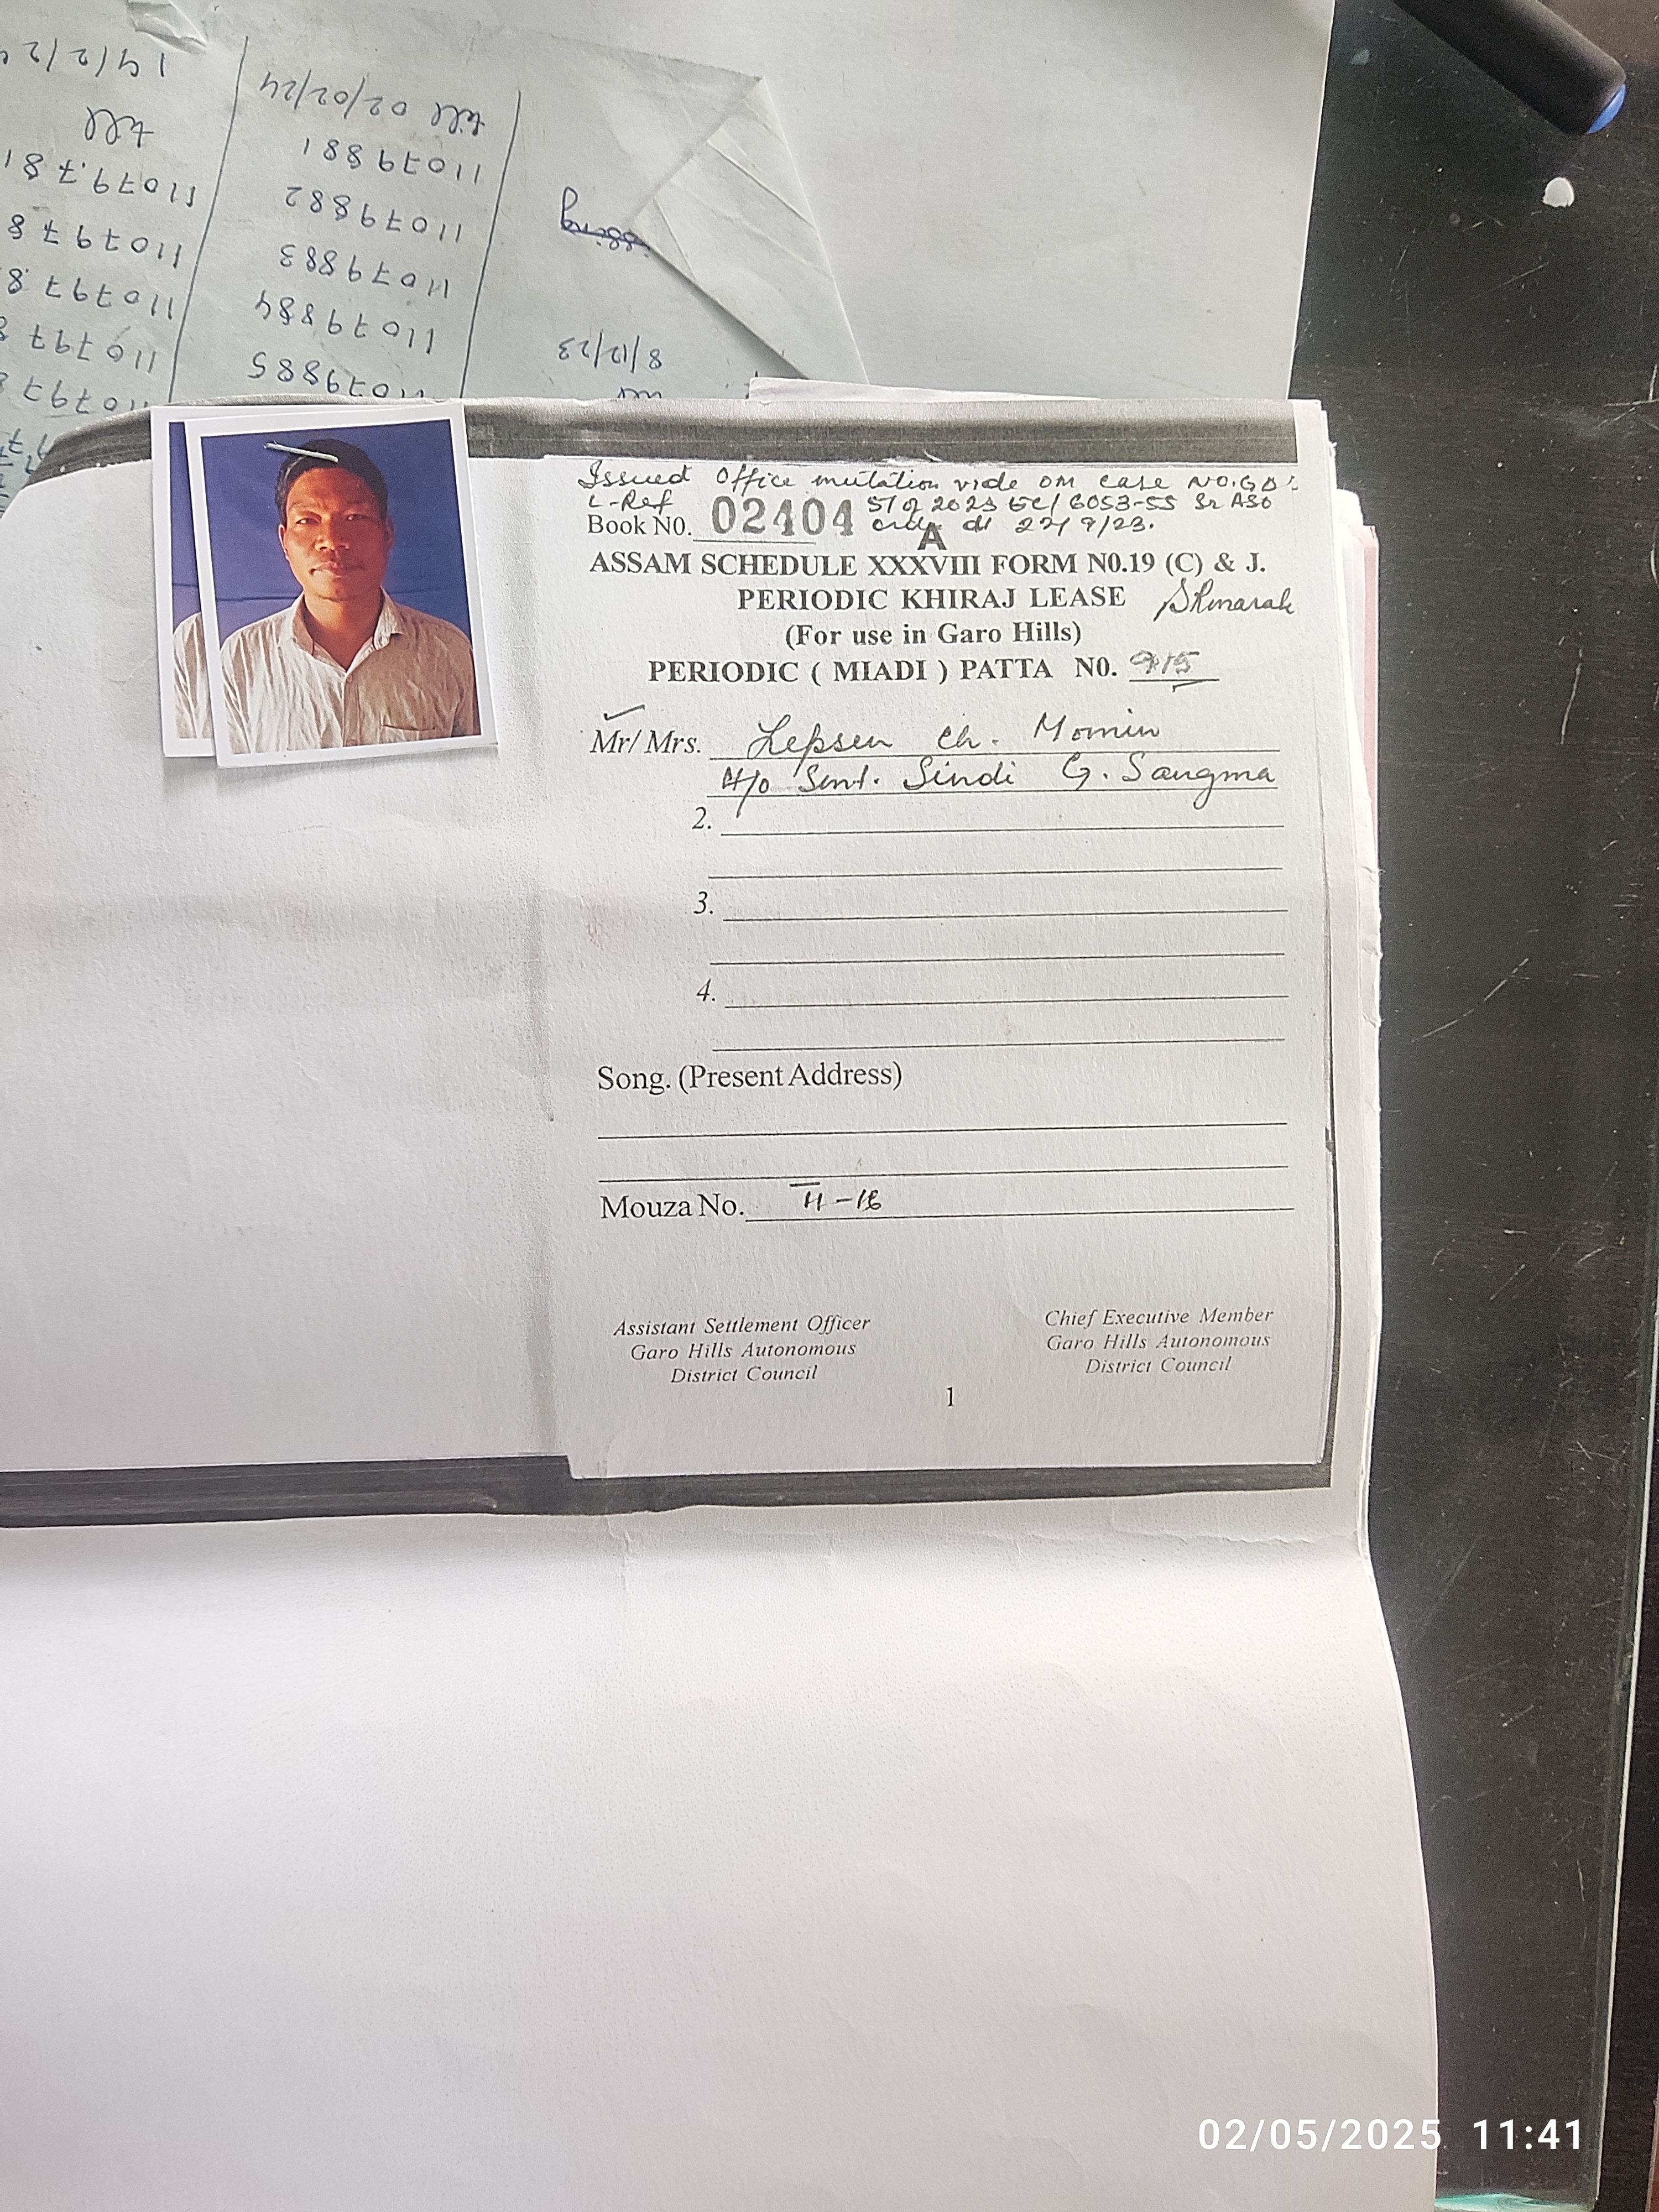 14/2/2
till 02/02/24
till
11079881
11079882
11079883
11079884
11079885
8/12/23
Issued Office mutation vide OM case NO.GD:
L-Ref 57 of 2023 GC/6053-55 Sr ASO
Book N0. 02404 order dt 22/9/23.
A
ASSAM SCHEDULE XXXVIII FORM N0.19 (C) & J.
PERIODIC KHIRAJ LEASE
(For use in Garo Hills)
PERIODIC ( MIADI ) PATTA N0. 915
Mr/ Mrs. Lepsen Ch. Momin
H/o Smt. Sindi G. Sangma
2.
3.
4.
Song. (Present Address)
Mouza No. II-16
Assistant Settlement Officer
Garo Hills Autonomous
District Council
Chief Executive Member
Garo Hills Autonomous
District Council
1
02/05/2025 11:41